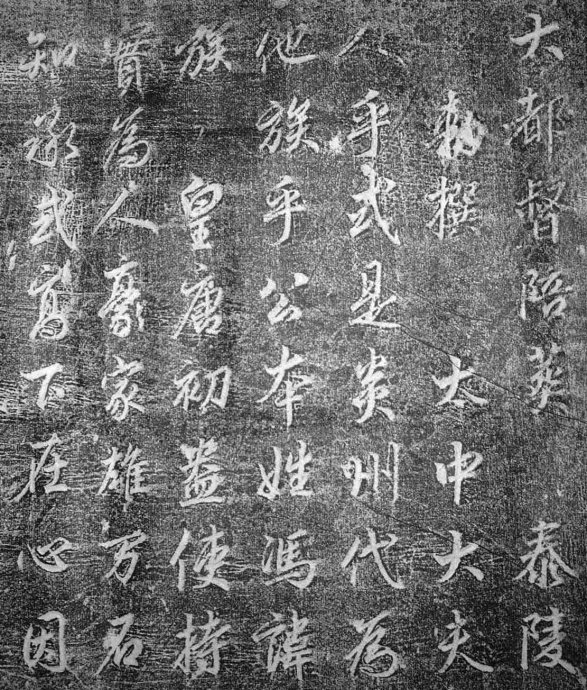 大都督陪葬 泰陵
勑撰 太中大夫
人乎式是炎州代為
他族乎公本姓馮諱
族 皇唐初盎使持
實為人豪家雄万石
知承式寫下在心因